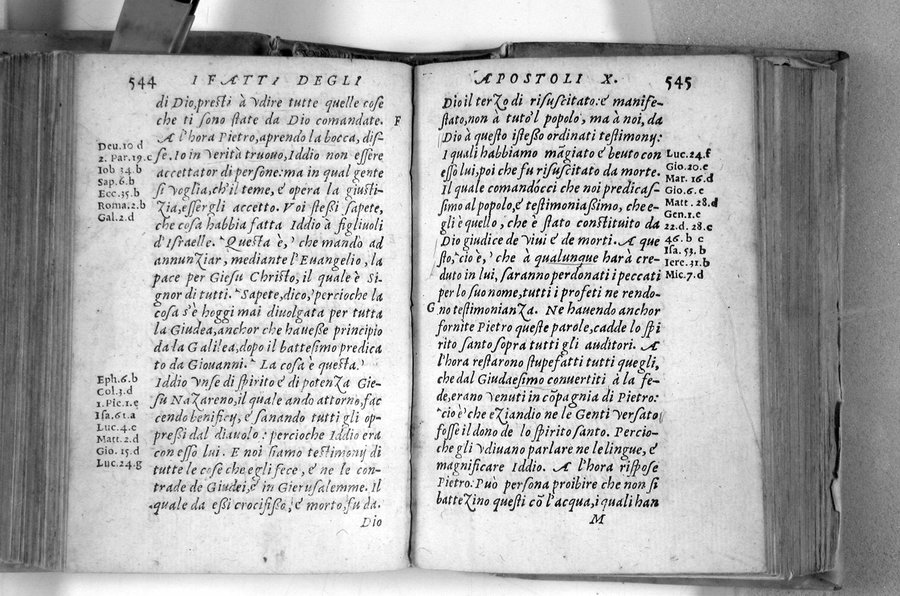 544 I FATTI DEGLI
di Dio, presti à vdire tutte quelle cose
che ti sono state da Dio comandate.
F
A l'hora Pietro, aprendo la bocca, dis-
se. Io in verità truouo, Iddio non essere
accettator di persone: ma in qual gente
si voglia, ch'il teme, e' opera la giusti-
zia, esser gli accetto. Voi stessi sapete,
che cosa habbia fatta Iddio à figliuoli
d'Israelle. Questa è, che mandò ad
annunziar, mediante l'Euangelio, la
pace per Giesu Christo, il quale è Si-
gnor di tutti. Sapete, dico, percioche la
cosa s'è hoggi mai diuolgata per tutta
la Giudea, anchor che hauesse principio
da la Galilea, dopo il battesimo predica
to da Giouanni. La cosa è questa.
Iddio vnse di spirito e' di potenza Gie-
su Nazareno, il quale ando attorno, fac
cendo benifici, e' sanando tutti gli op-
pressi dal diauolo: percioche Iddio era
con esso lui. E noi siamo testimonij di
tutte le cose che egli fece, e' ne le con-
trade de Giudei, e' in Gierusalemme. Il
quale da essi crocifisso, e' morto, fu da.
Dio
Deu.10 d
2. Par.19.c
Iob 34.b
Sap.6.b
Ecc.35.b
Roma.2.b
Gal.2.d
Eph.6.b
Col.3.d
1.Pic.1.e
Isa.61.a
Luc.4.c
Matt.2.d
Gio.15.d
Luc.24.g
APOSTOLI X. 545
Dio il terzo di risuscitato: e' manife-
stato, non à tuto'l popolo, ma à noi, da
Dio à questo istesso ordinati testimony:
I quali habbiamo mãgiato e' beuto con
esso lui, poi che fu risuscitato da morte.
Il quale comandocci che noi predicas-
simo al popolo, e' testimoniassimo, che e-
gli è quello, che è stato constituito da
Dio giudice de viui e' de morti. A que
sto, cio è, che à qualunque harà cre-
duto in lui, saranno perdonati i peccati
per lo suo nome, tutti i profeti ne rendo-
G no testimonianza. Ne hauendo anchor
fornite Pietro queste parole, cadde lo spi
rito santo sopra tutti gli auditori. A
l'hora restarono stupefatti tutti quegli,
che dal Giudaesimo conuertiti à la fe-
de, erano venuti in cõpagnia di Pietro:
cio è che eziandio ne le Genti versato
fosse il dono de lo spirito santo. Percio-
che gli vdiuano parlare ne le lingue, e'
magnificare Iddio. A l'hora rispose
Pietro. Può persona proibire che non si
battezino questi cõ l'acqua, i quali han
M
Luc.24.f
Gio.20.e
Mar.16.d
Gio.6.e
Matt.28.d
Gen.1.c
22.d.28.c
46.b c
Isa.53.b
Iere.31.b
Mic.7.d